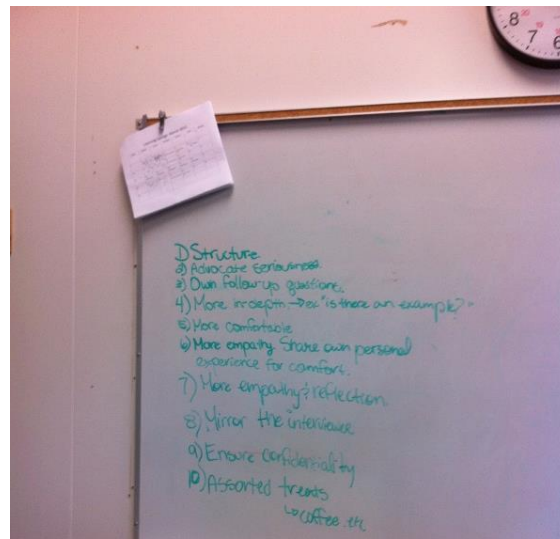 8
7
6
1) Structure
2) Advocate seriousness
3) Own follow-up questions.
4) More in depth → ex "is there an example?"
5) More comfortable
6) More empathy Share own personal
experience for comfort.
7) More empathy & reflection
8) Mirror the interviewee
9) Ensure confidentiality
10) Assorted treats
↳ coffee etc